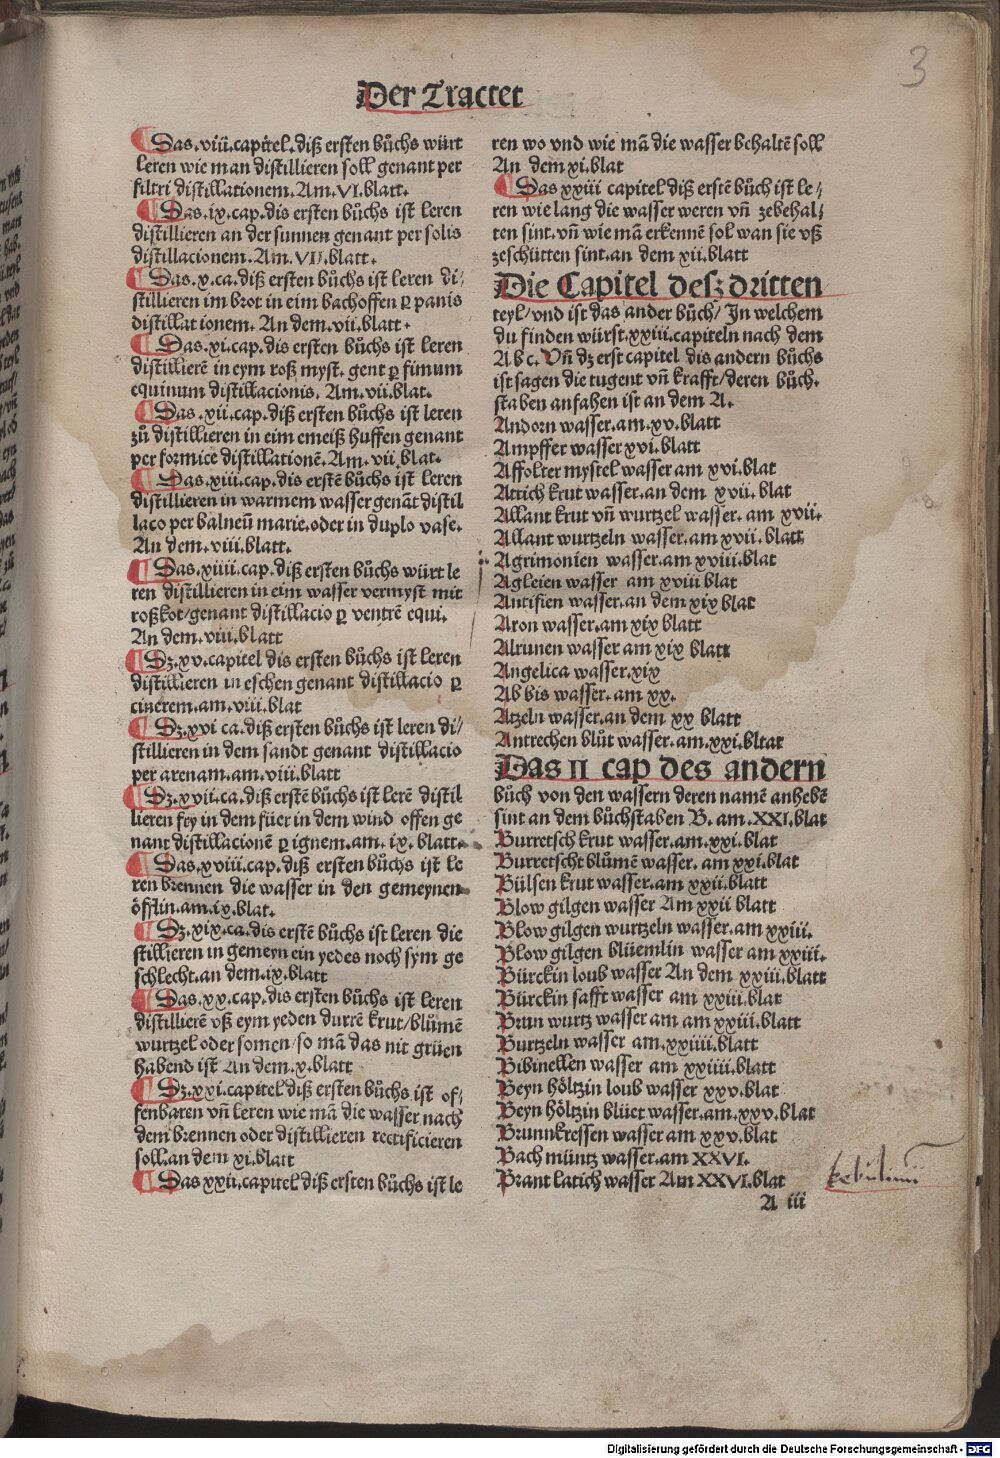 3
Der Tractet
Das.viii.capitel.diß ersten bůchs würt
leren wie man distillieren soll genant per
filtri distillationem.Am.VI.blatt.
Das.ix.cap.dis ersten bůchs ist leren
distillieren an der sunnen genant per solis
distillacionem.Am.VII.blatt.
Das.x.ca.diß ersten bůchs ist leren di/
stillieren im brot in eim bachoffen ꝑ panis
distillat ionem.An dem.vii.blatt.
Das.xi.cap.dis ersten bůchs ist leren
distillierē in eym roß myst.gent ꝑ fimum
equinum distillacionis.Am.vii.blat.
Das.xii.cap.diß ersten bůchs ist leren
zů distillieren in eim emeiß huffen genant
per formice distillationē.Am.vii.blat.
Das.xiii.cap.dis erstē bůchs ist leren
distillieren in warmem wasser genāt distil
laco per balneū marie.oder in duplo vase.
An dem.viii.blatt.
Das.xiiii.cap.diß ersten bůchs würt le
ren distillieren in eim wasser vermyst mit
roßkot/genant distillacio ꝑ ventrē equi.
An dem.viii.blatt
Dz.xv.capitel dis ersten bůchs ist leren
distillieren in eschen genant distillacio ꝑ
cinerem.am.viii.blat
Dz.xvi ca.diß ersten bůchs ist leren di/
stillieren in dem sandt genant distillacio
per arenam.am.viii.blatt
Dz.xvii.ca.diß erstē bůchs ist lerē distil
lieren fry in dem füer in dem wind offen ge
nant distillacionē ꝑ ignem.am.ix.blatt.
Das.xviii.cap.diß ersten bůchs ist le
ren brennen die wasser in den gemeynen
öfflin.am.ix.blat.
Dz.xix.ca.dis erstē bůchs ist leren die
stillieren in gemeyn ein yedes noch sym ge
schlecht.an dem.ix.blatt
Das.xx.cap.dis ersten bůchs ist leren
distillierē vß eym yeden durrē krut/blůmē
wurtzel oder somen/so mā das nit grüen
habend ist An dem.x.blatt
Dz.xxi.capitel diß ersten bůchs ist of/
fenbaren vñ leren wie mā die wasser nach
dem brennen oder distillieren rectificieren
soll.an dem xi.blatt
Das xxii.capitel diß ersten bůchs ist le
ren wo vnd wie mā die wasser behaltē soll
An dem.xi.blat
Das xxiii capitel diß erstē bůch ist le/
ren wie lang die wasser weren vñ zebehal/
ten sint.vñ wie mā erkennē sol wan sie vß
zeschütten sint.an dem xii.blatt
Die Capitel desz dritten
teyl/vnd ist das ander bůch/ In welchem
du finden würst.xxiii.capiteln nach dem
A b c. Vñ dz erst capitel dis andern bůchs
ist sagen die tugent vñ krafft/deren bůch.
staben anfahen ist an dem A.
Andorn wasser.am.xv.blatt
Ampffer wasser xvi.blatt
Affolter mystel wasser am xvi.blat
Attich krut wasser.an dem xvii.blat
Allant krut vñ wurtzel wasser.am xvii.
Allant wurtzeln wasser.am xvii.blatt
Agrimonien wasser.am xviii.blat
Agleien wasser am xviii blat
Antifien wasser.an dem xix blat
Aron wasser.am xix blatt
Alrunen wasser am xix blatt
Angelica wasser.xix
Ab bis wasser.am xx.
Atzeln wasser.an dem xx blatt
Antrechen blůt wasser.am.xxi.bltat
Das II cap des andern
bůch von den wassern deren namē anhebē
sint an dem bůchstaben B.am.XXI.blat
Burretsch krut wasser.am.xxi.blat
Burretscht blůmē wasser.am xxi.blat
Bülsen krut wasser.am xxii.blatt
Blow gilgen wasser Am xxii blatt
Blow gilgen wurtzeln wasser.am xxiii.
Blow gilgen blüemlin wasser am xxiii.
Bürckin loub wasser An dem xxiii.blatt
Bürckin safft wasser am xxiii.blat
Brun wurtz wasser am am xxiii.blatt
Burtzeln wasser am.xxiiii.blatt
Bibinellen wasser am xxiiii.blatt
Beyn höltzin loub wasser xxv.blat
Beyn höltzin blüet wasser.am.xxv.blat
Brunnkressen wasser am xxv.blat
Bach müntz wasser.am XXVI.
Brant latich wasser Am XXVI.blat
A iii
Digitalisierung gefördert durch die Deutsche Forschungsgemeinschaft - DFG